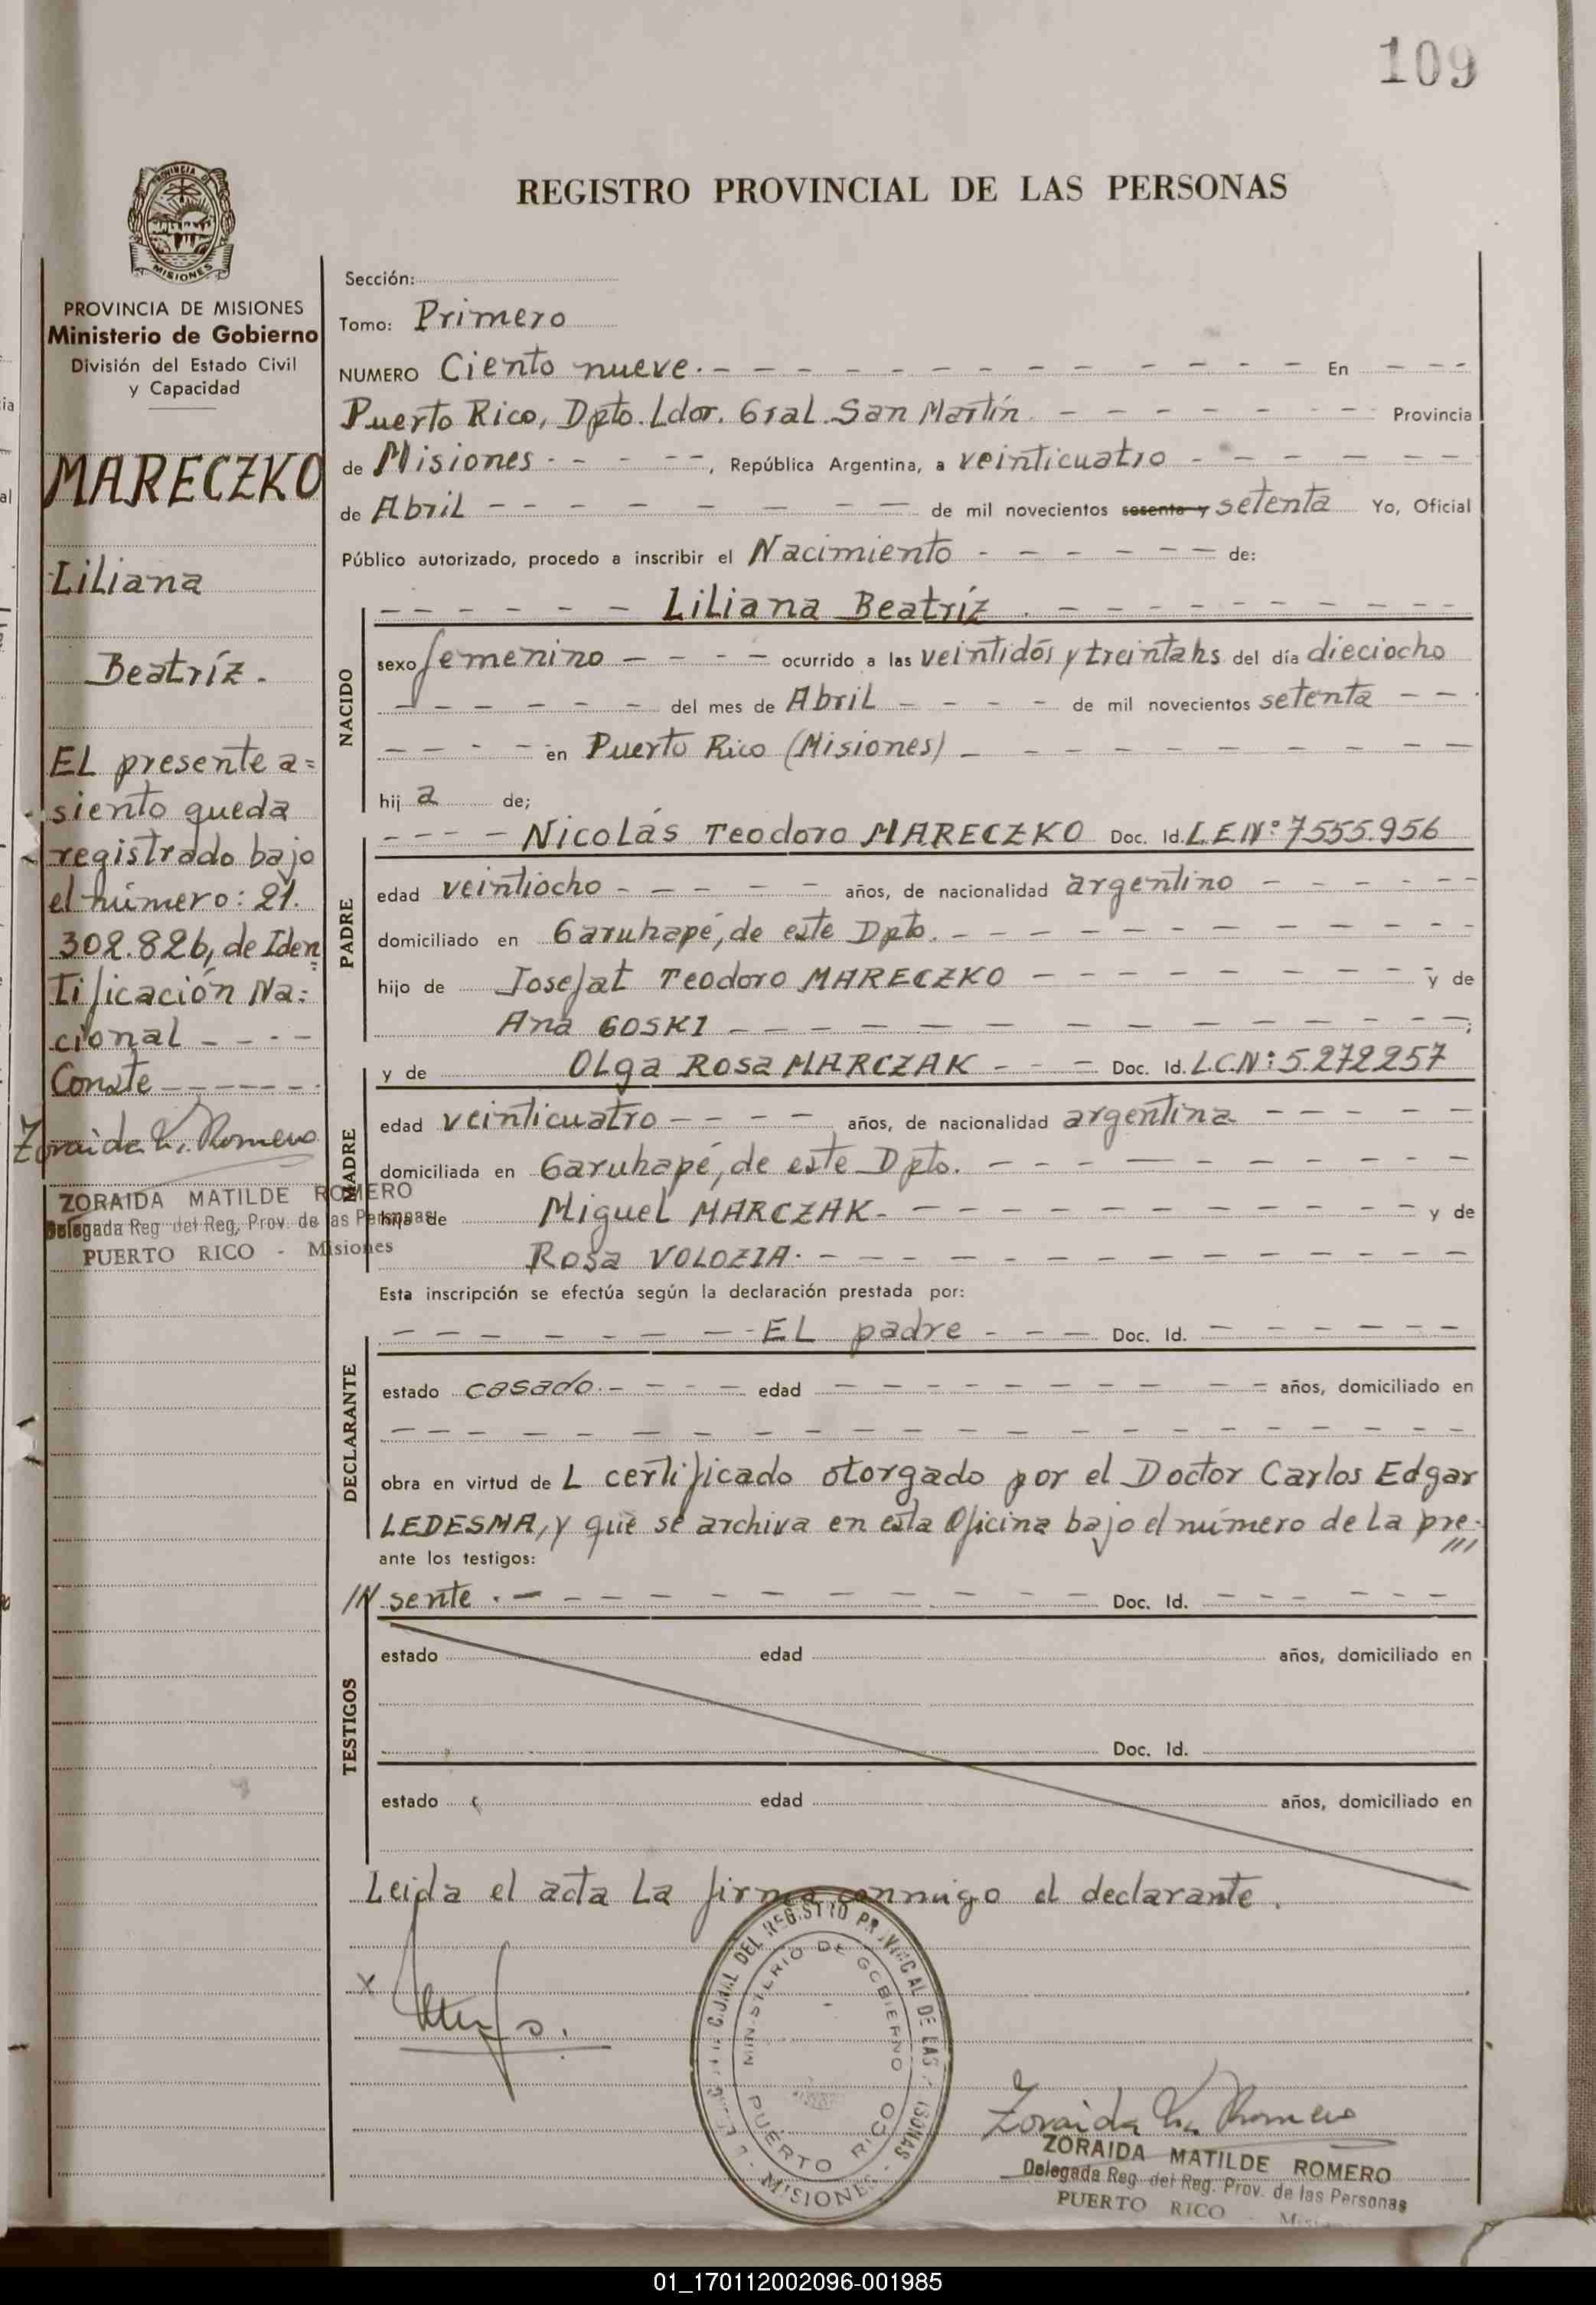 109
REGISTRO PROVINCIAL DE LAS PERSONAS
PROVINCIA DE MISIONES
Ministerio de Gobierno
División del Estado Civil
y Capacidad
MARECZKO
Liliana
Beatríz.
EL presente a=
siento queda
registrado bajo
el número: 21.
302.826, de Iden
tificación Na=
cional - - - -
Conste - - - - - -
Zoraida M. Romero
ZORAIDA MATILDE ROMERO
Delegada Reg. del Reg. Prov. de las Personas
PUERTO RICO - Misiones
Sección:
Tomo: Primero
NUMERO Ciento nueve. - - - - En - - -
Puerto Rico, Dpto. Ldor. Gral. San Martín. - - - - Provincia
de Misiones - - - -, República Argentina, a veinticuatro - - - -
de Abril - - - - de mil novecientos sesenta y setenta Yo, Oficial
Público autorizado, procedo a inscribir el Nacimiento - - - - de:
NACIDO
- - - - Liliana Beatríz. - - - -
sexo femenino - - - - ocurrido a las veintidós y treinta hs del día dieciocho
- - - - del mes de Abril - - - - de mil novecientos setenta - -
- - - - en Puerto Rico (Misiones) - - - -
hij a de;
PADRE
- - - - Nicolás Teodoro MARECZKO Doc. Id. L.E.Nº 7555.956
edad veintiocho - - - - años, de nacionalidad argentino - - - -
domiciliado en Garuhapé, de este Dpto. - - - -
hijo de Josefat Teodoro MARECZKO - - - - y de
Ana GOSKI - - - - ;
MADRE
y de Olga Rosa MARCZAK - - - Doc. Id. L.C.N: 5.272257
edad veinticuatro - - - - años, de nacionalidad argentina - - - -
domiciliada en Garuhapé, de este Dpto. - - - -
hija de Miguel MARCZAK - - - - y de
Rosa VOLOZIA. - - - -
Esta inscripción se efectúa según la declaración prestada por:
DECLARANTE
- - - - EL padre - - - Doc. Id. - - - -
estado casado. - - - - edad - - - - años, domiciliado en
- - - -
obra en virtud de L certificado otorgado por el Doctor Carlos Edgar
LEDESMA, y que se archiva en esta Oficina bajo el número de La pre-
ante los testigos:
TESTIGOS
/// sente. - - - - Doc. Id. - - - -
estado edad años, domiciliado en
Doc. Id.
estado edad años, domiciliado en
Leida el acta La firma conmigo el declarante.
X
REGISTRO PROVINCIAL DE LAS
MINISTERIO DE GOBIERNO
PUERTO RICO
- MISIONES -
Zoraida M. Romero
ZORAIDA MATILDE ROMERO
Delegada Reg. del Reg. Prov. de las Personas
PUERTO RICO -
01_170112002096-001985